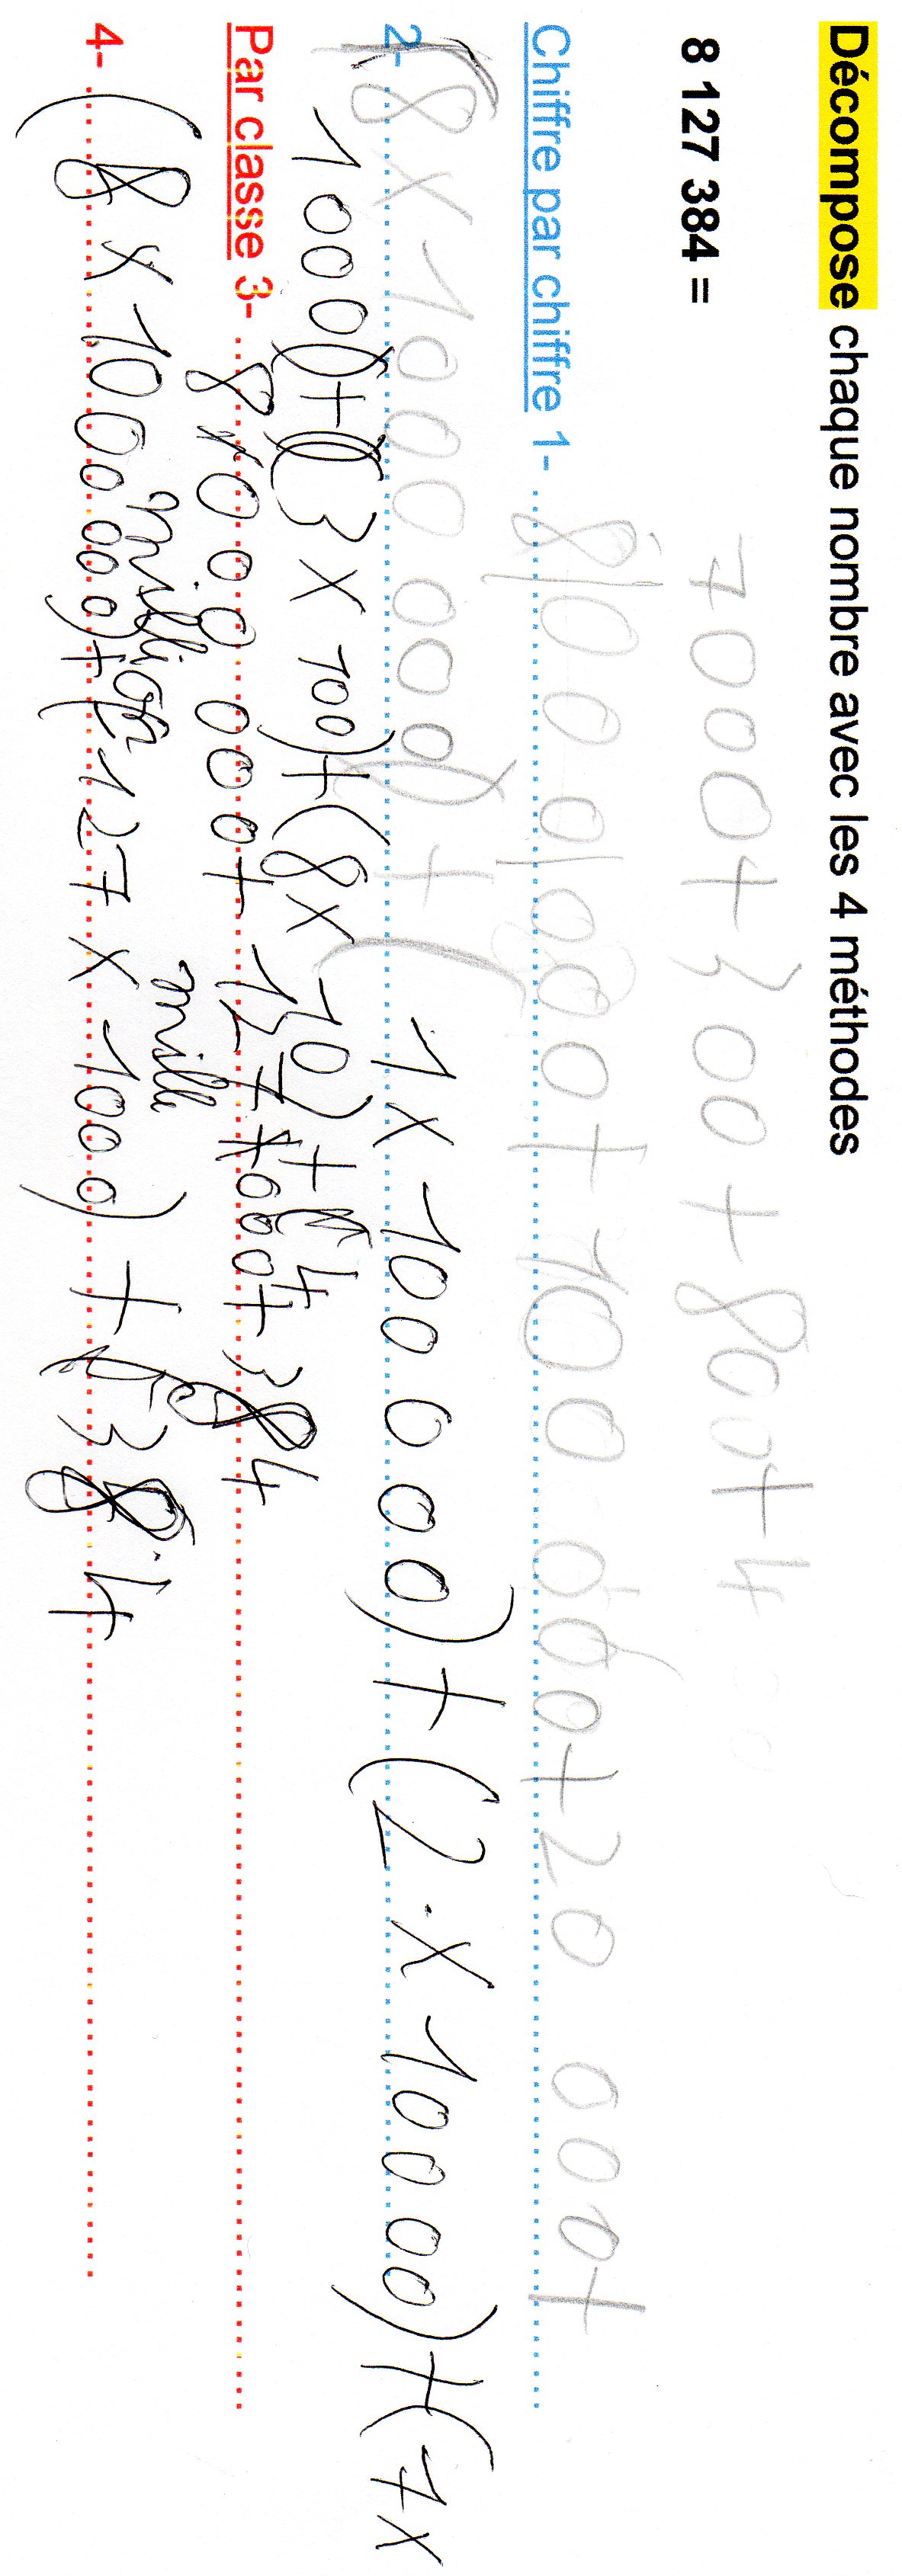 Décompose chaque nombre avec les 4 méthodes
8 127 384 =
7000+300+800+4
Chiffre par chiffre 1- 8 000 000+100 000+20 000+
2- (8 x 1000 000)+(1x 100 000)+(2 x 10000)+(7x
1000)+(3 x 100)+(8x 10)+ 4
Par classe 3- 8 000 000+ 127 000+ 384
million mille
4- (8 x 1000 000)+(127 x 1000) + 384